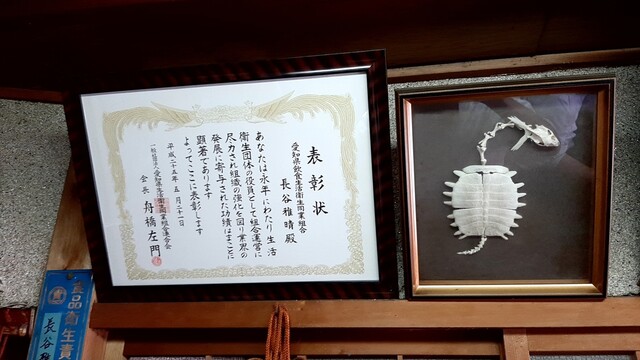 表彰状
愛知県飲食生活衛生同業組合
長谷雅晴殿
あなたは永年にわたり生活
衛生団体の役員として組合運営に
尽力され組織の強化を図り業界の
発展に寄与された功績はまことに
顕著であります
よってここに表彰します
平成二十五年五月二十一日
一般社団法人愛知県生活衛生同業組合連合会
会長 舟橋左門
食品衛生責
長谷雅